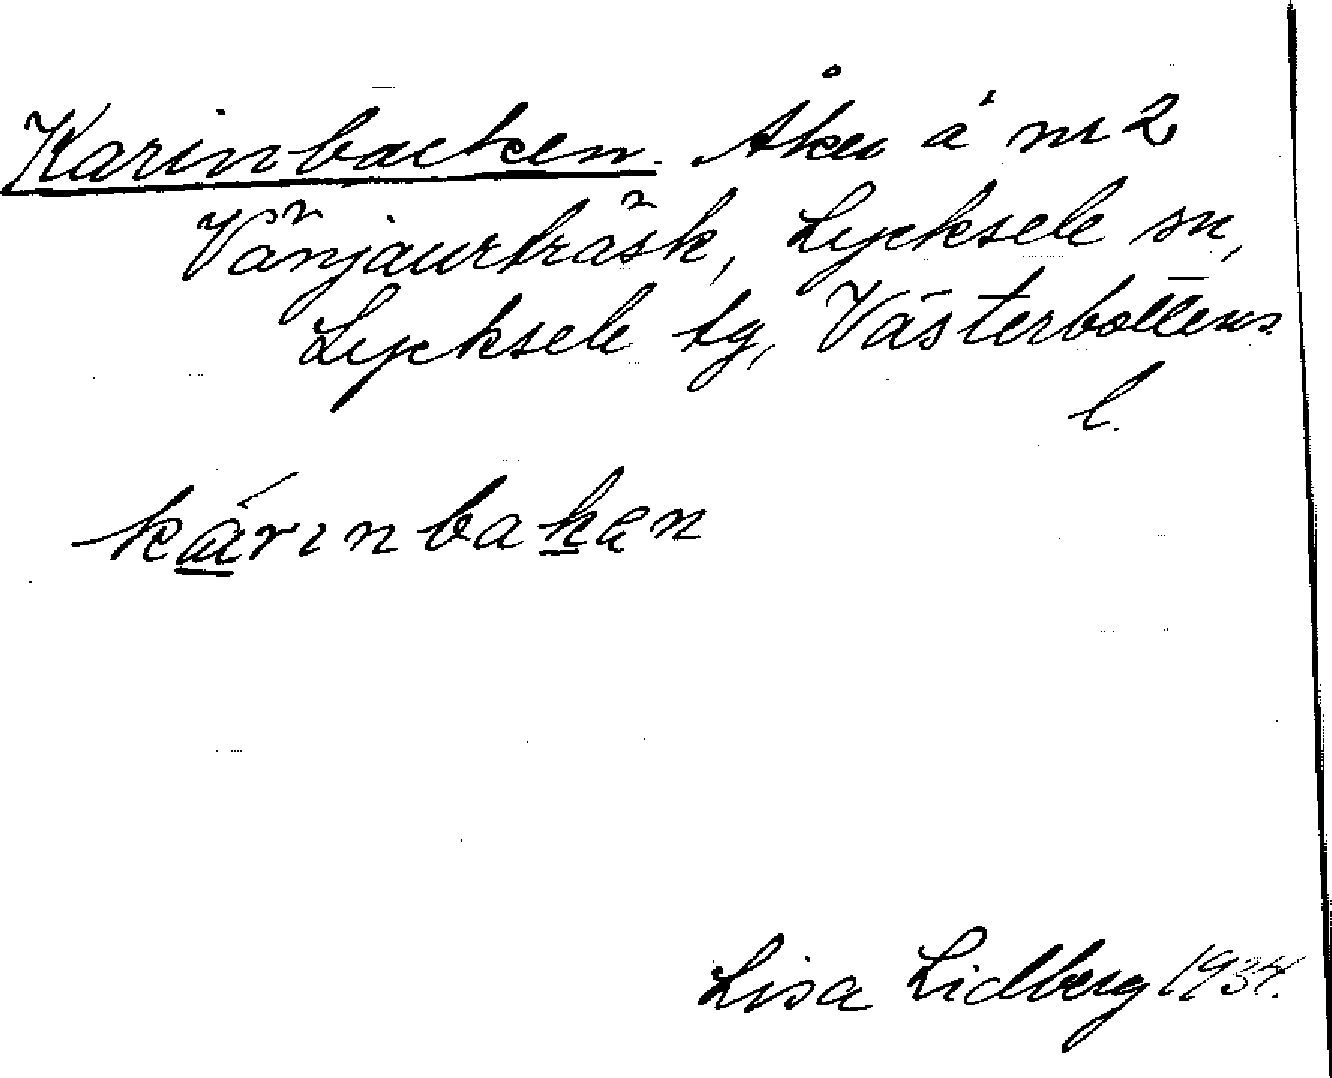 Karinbacken. Åker å nr 2
Vänjaurträsk, Lycksele sn,
Lycksele tg, Västerbottens
l.
kárinbaken
Lisa Lidberg 1934.